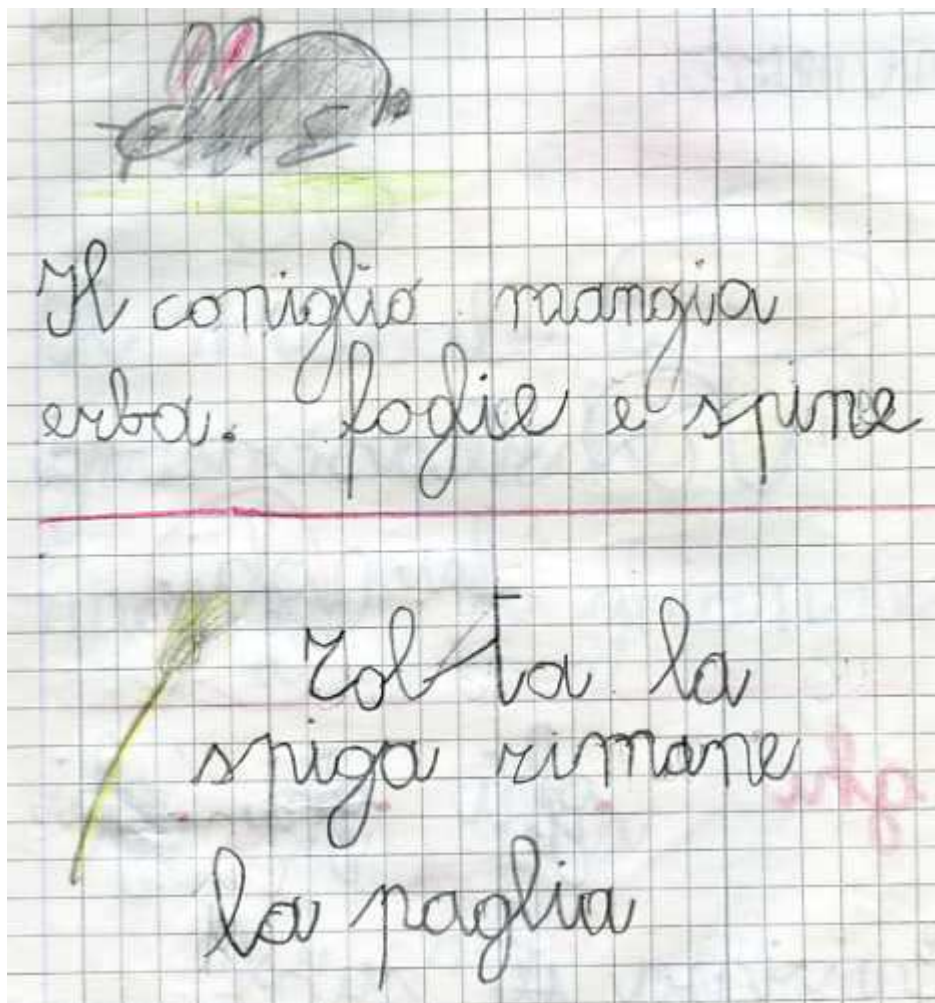 Il coniglio mangia
erba. foglie e spine
Tolta la
spiga rimane
la paglia